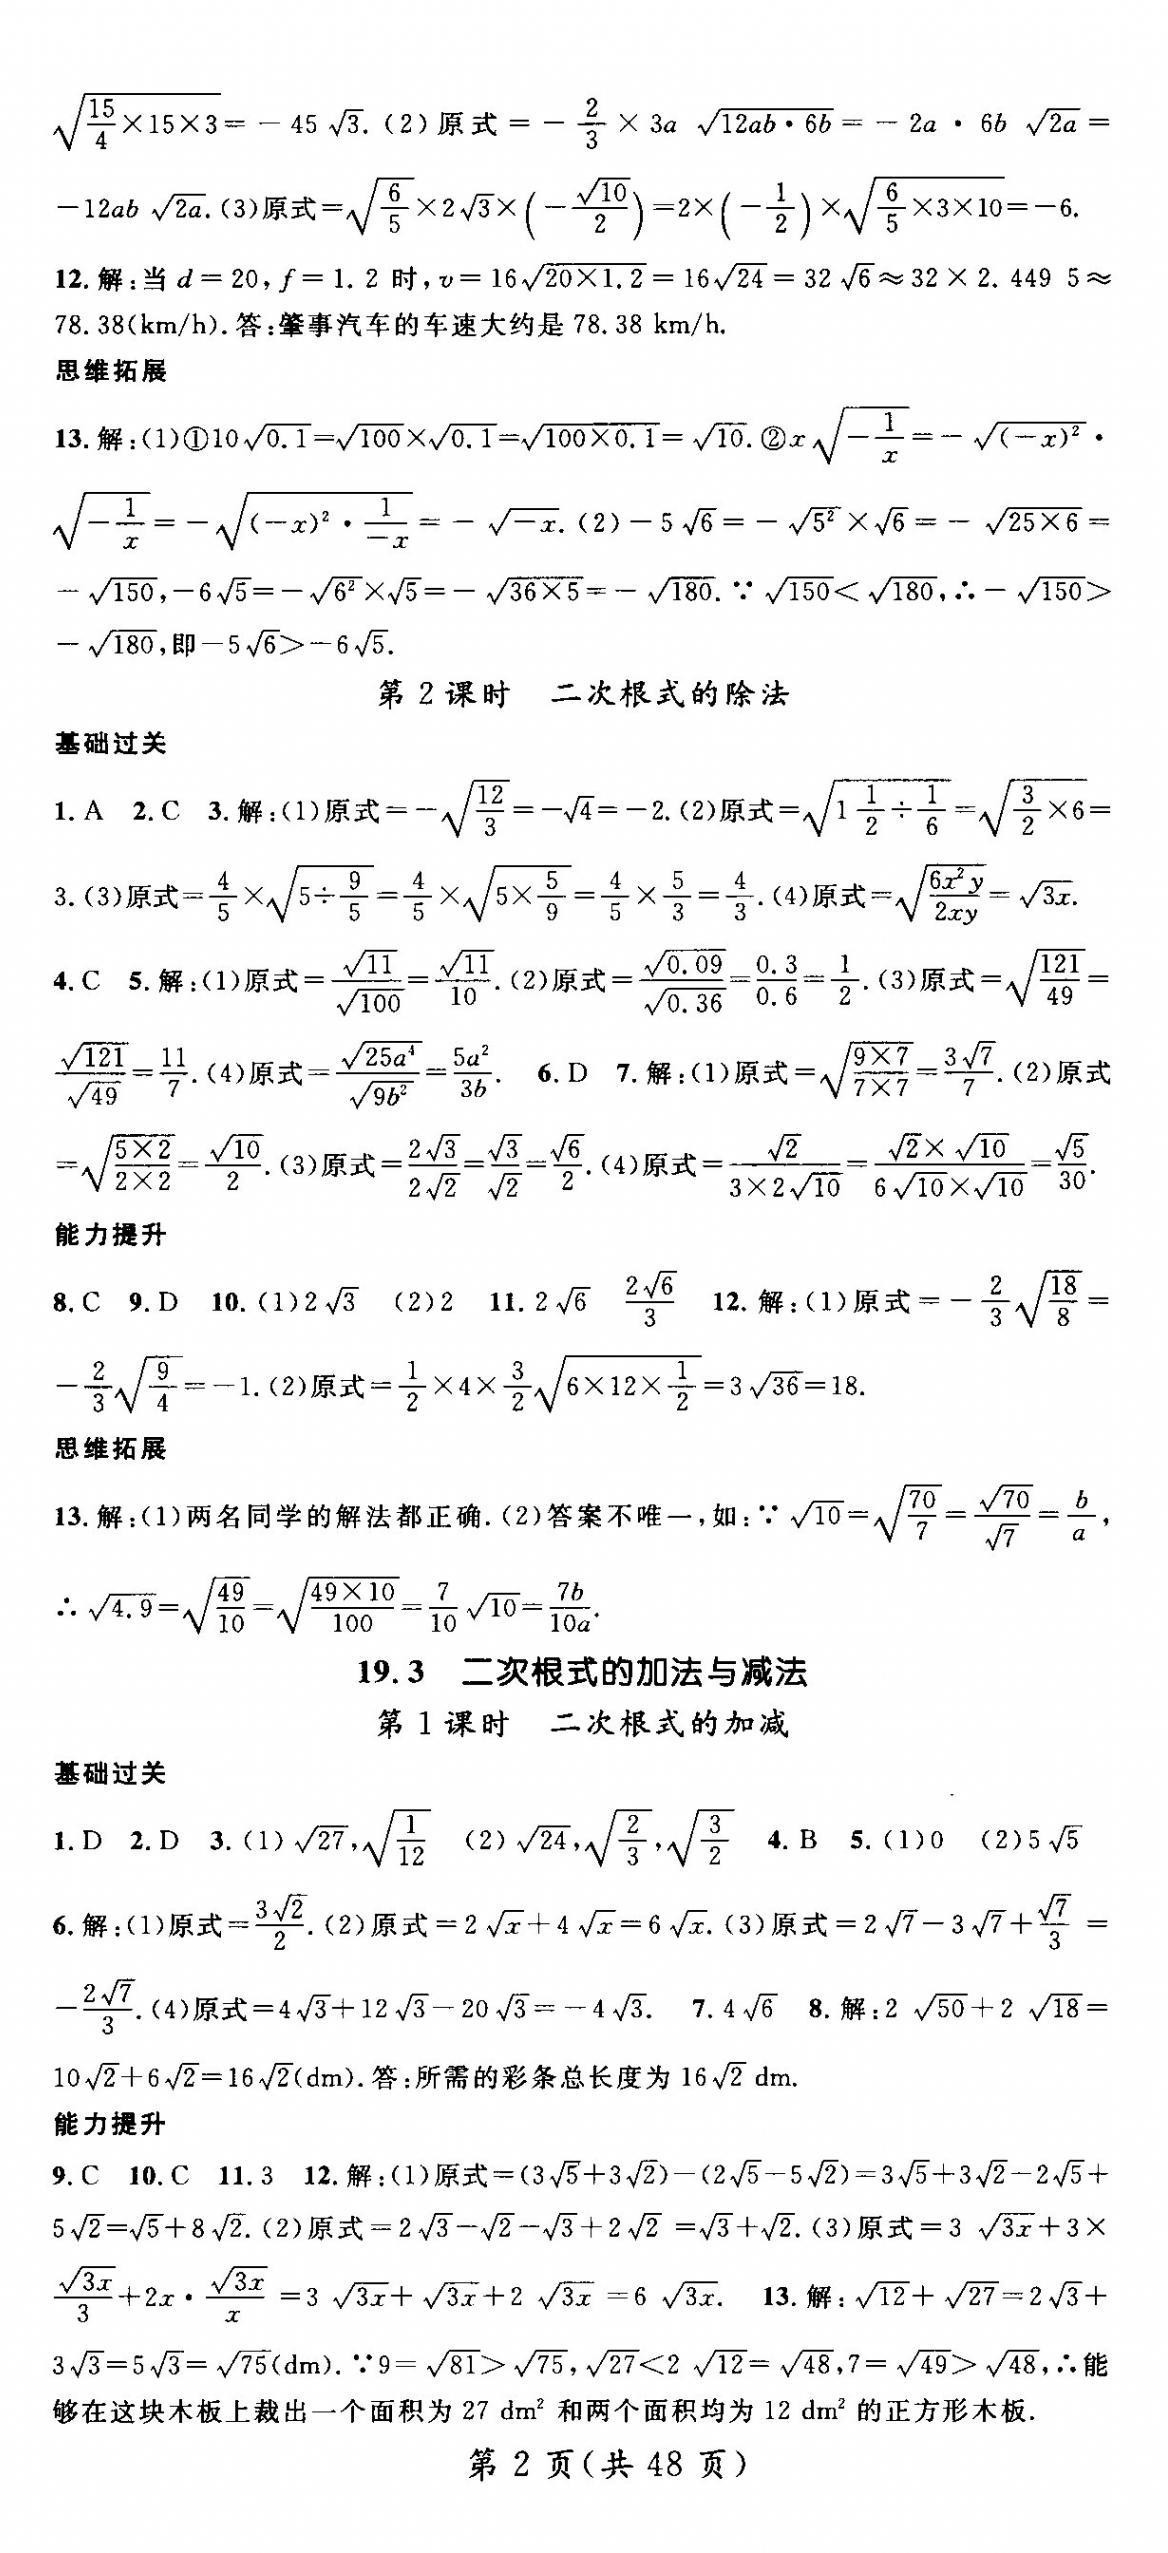 √(15/4×15×3)=－45√3.(2)原式=－2/3×3a√(12ab·6b)=－2a·6b√(2a)=
－12ab√(2a).(3)原式=√(6/5)×2√3×(－√10/2)=2×(－1/2)×√(6/5×3×10)=－6.
12.解:当d=20,f=1.2时,v=16√(20×1.2)=16√24=32√6≈32×2.449 5≈
78.38(km/h).答:肇事汽车的车速大约是78.38 km/h.
思维拓展
13.解:(1)①10√0.1=√100×√0.1=√(100×0.1)=√10.②x√(－1/x)=－√((－x)²)·
√(－1/x)=－√((－x)²·1/(－x))=－√(－x).(2)－5√6=－√(5²)×√6=－√(25×6)=
－√150,－6√5=－√(6²)×√5=－√(36×5)=－√180.∵√150<√180,∴－√150>
－√180,即－5√6>－6√5.
第2课时 二次根式的除法
基础过关
1.A 2.C 3.解:(1)原式=－√(12/3)=－√4=－2.(2)原式=√(1 1/2÷1/6)=√(3/2×6)=
3.(3)原式=4/5×√(5÷9/5)=4/5×√(5×5/9)=4/5×5/3=4/3.(4)原式=√(6x²y/2xy)=√(3x).
4.C 5.解:(1)原式=√11/√100=√11/10.(2)原式=√0.09/√0.36=0.3/0.6=1/2.(3)原式=√(121/49)=
√121/√49=11/7.(4)原式=√(25a⁴)/√(9b²)=5a²/3b. 6.D 7.解:(1)原式=√(9×7/7×7)=3√7/7.(2)原式
=√(5×2/2×2)=√10/2.(3)原式=2√3/2√2=√3/√2=√6/2.(4)原式=√2/(3×2√10)=(√2×√10)/(6√10×√10)=√5/30.
能力提升
8.C 9.D 10.(1)2√3 (2)2 11.2√6 2√6/3 12.解:(1)原式=－2/3√(18/8)=
－2/3√(9/4)=－1.(2)原式=1/2×4×3/2√(6×12×1/2)=3√36=18.
思维拓展
13.解:(1)两名同学的解法都正确.(2)答案不唯一,如:∵√10=√(70/7)=√70/√7=b/a,
∴√4.9=√(49/10)=√(49×10/100)=7/10√10=7b/10a.
19.3 二次根式的加法与减法
第1课时 二次根式的加减
基础过关
1.D 2.D 3.(1)√27,√(1/12) (2)√24,√(2/3),√(3/2) 4.B 5.(1)0 (2)5√5
6.解:(1)原式=3√2/2.(2)原式=2√x+4√x=6√x.(3)原式=2√7－3√7+√7/3=
－2√7/3.(4)原式=4√3+12√3－20√3=－4√3. 7.4√6 8.解:2√50+2√18=
10√2+6√2=16√2(dm).答:所需的彩条总长度为16√2 dm.
能力提升
9.C 10.C 11.3 12.解:(1)原式=(3√5+3√2)－(2√5－5√2)=3√5+3√2－2√5+
5√2=√5+8√2.(2)原式=2√3－√2－√3+2√2=√3+√2.(3)原式=3√(3x)+3×
√(3x)/3+2x·√(3x)/x=3√(3x)+√(3x)+2√(3x)=6√(3x). 13.解:√12+√27=2√3+
3√3=5√3=√75(dm).∵9=√81>√75,√27<2√12=√48,7=√49>√48,∴能
够在这块木板上裁出一个面积为27 dm²和两个面积均为12 dm²的正方形木板.
第2页(共48页)